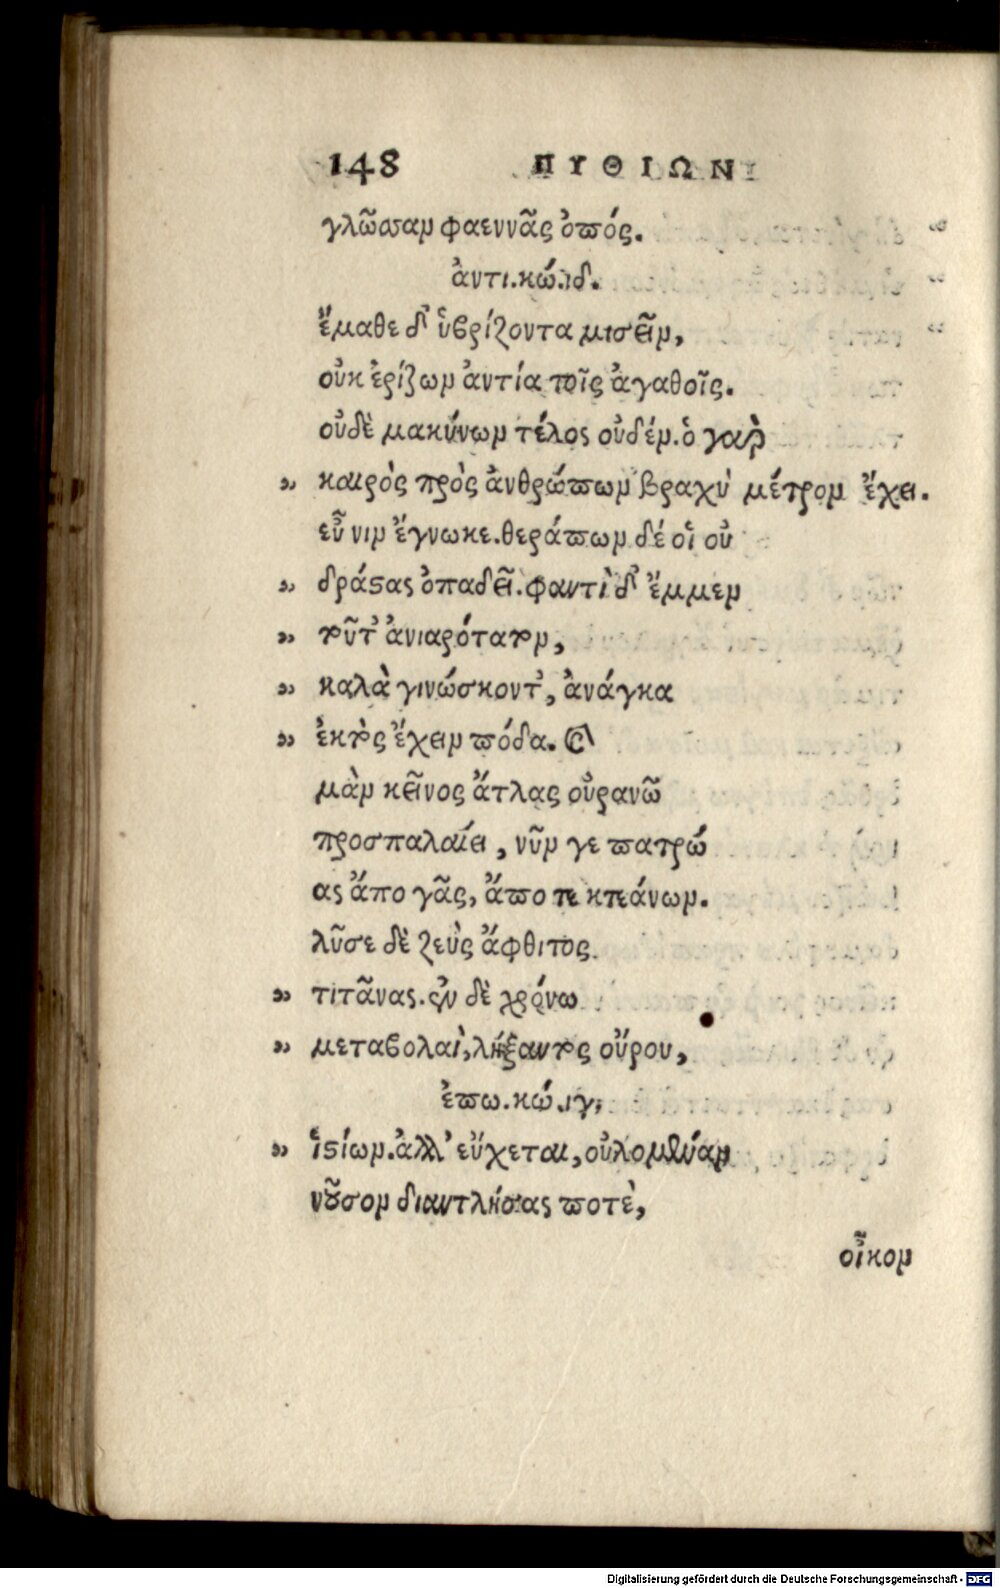 148 ΠΥΘΙΩΝ
γλῶσσαν φαεννᾶς ὀπός.
ἀντι.κώ.ιδ.
ἔμαθε δ' ὑβρίζοντα μισεῖν,
οὐκ ἐρίζων ἀντία τοῖς ἀγαθοῖς.
οὐδὲ μακύνων τέλος οὐδέν.ὁ γαρ
„ καιρὸς πρὸς ἀνθρώπων βραχὺ μέτρον ἔχει.
εὖ νιν ἔγνωκε.θεράπων δέ οἱ οὐ
„ δράσας ὀπαδεῖ.φαντὶ δ' ἔμμεν
„ τοῦτ' ἀνιαρότατον,
„ καλὰ γινώσκοντ', ἀνάγκα
„ ἐκτὸς ἔχειν πόδα. καὶ
μὰν κεῖνος ἄτλας οὐρανῶ
προσπαλαίει, νῦν γε πατρώ
ας ἄπο γᾶς, ἄπο τε κτεάνων.
λῦσε δὲ ζεὺς ἄφθιτος
„ τιτᾶνας.ἐν δὲ χρόνω
„ μεταβολαὶ,λήξαντος οὔρου,
ἐπω.κώ.ιγ.
„ ἱστίων.ἀλλ' εὔχεται, οὐλομέναν
νοῦσον διαντλήσας ποτὲ,
οἶκον
Digitalisierung gefördert durch die Deutsche Forschungsgemeinschaft - DFG